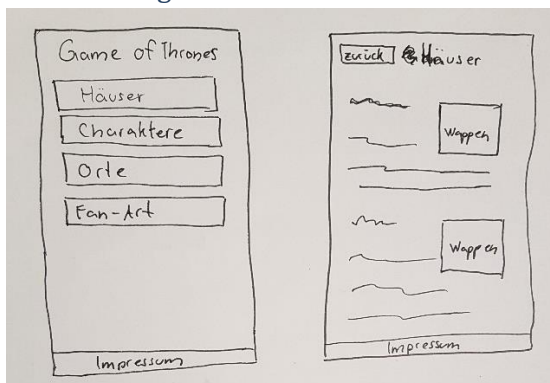 Game of Thrones
Häuser
Charaktere
Orte
Fan-Art
Impressum
zurück Häuser
Wappen
Wappen
Impressum